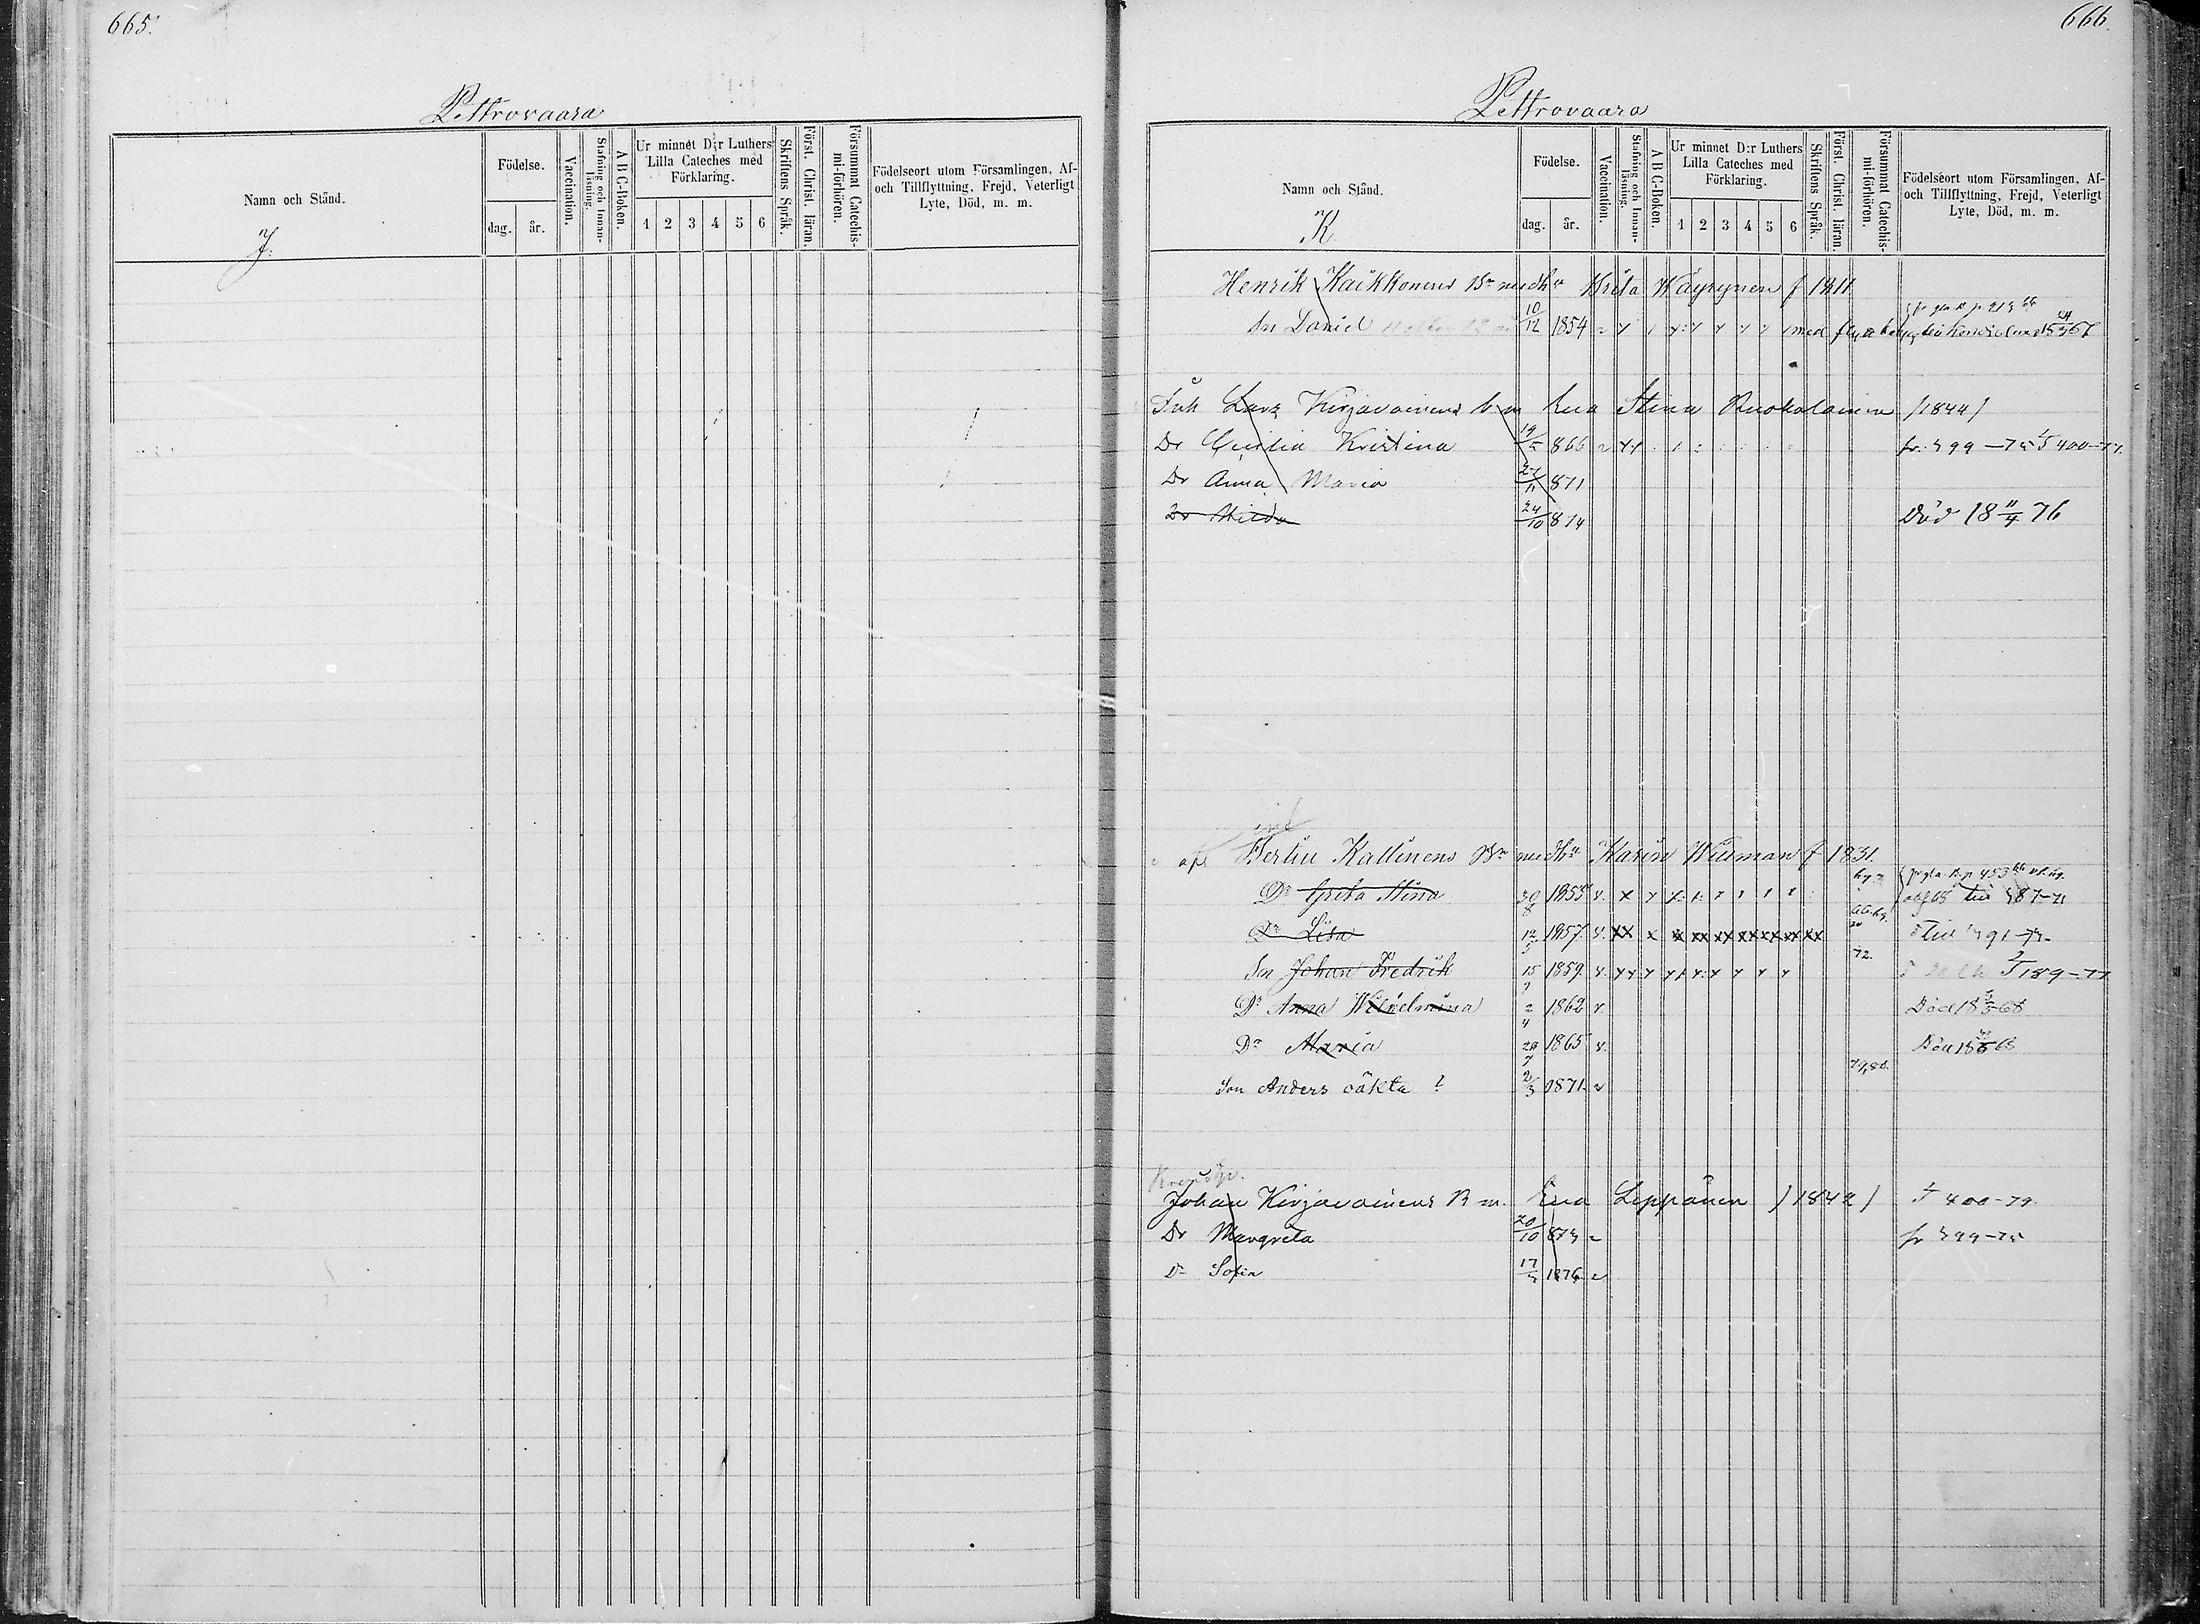 665.
Pettrovaara
Namn och Stånd.
J.
Födelse.
dag. år.
Vaccination.
Stafning och Innan-läsning.
A B C-Boken.
Ur minnet D:r Luthers Lilla Cateches med Förklaring.
1 2 3 4 5 6
Skriftens Språk.
Först. Christ. läran.
Försummat Catechis-mi-förhören.
Födelseort utom Församlingen, Af- och Tillflyttning, Frejd, Veterligt Lyte, Död, m. m.
666.
Pettrovaara
Namn och Stånd.
K.
Födelse.
dag. år.
Vaccination.
Stafning och Innan-läsning.
A B C-Boken.
Ur minnet D:r Luthers Lilla Cateches med Förklaring.
1 2 3 4 5 6
Skriftens Språk.
Först. Christ. läran.
Försummat Catechis-mi-förhören.
Födelseort utom Församlingen, Af- och Tillflyttning, Frejd, Veterligt Lyte, Död, m. m.
Henrik Kaikkonens Bn med hu Brita Wäyrynen f 1811
Sn Daniel 10/12 1854 med
Joh Lars Kirjavainens b m Eva Stina Ruokolainen /1844/
Dr Cecilia Kristina 866 fr. 399-75 400-77
Dr Anna Maria 871
Dr Hilda 24/10 874 Död 18 11/4 76
Bertil Kallinens Bn med hu Karin Willman f 1831.
Dr Greta Stina 30/8 1855 v. till 387-71
Dr Lisa 1857 v. till 391-72
Sn Johan Fredrik 15 1859 v. 72. 189-77
Dr Anna Wilhelmina 2/4 1862 v. Död 18 68
Dr Maria 1865 v. Död 18 68
Son Anders oäkta 2/3 1871. v 79,80.
Johan Kirjavainens B m. Eva Leppänen /1842/ 400-79.
Dr Margreta 20/10 873 fr 399-75
Dr Sofia 1876